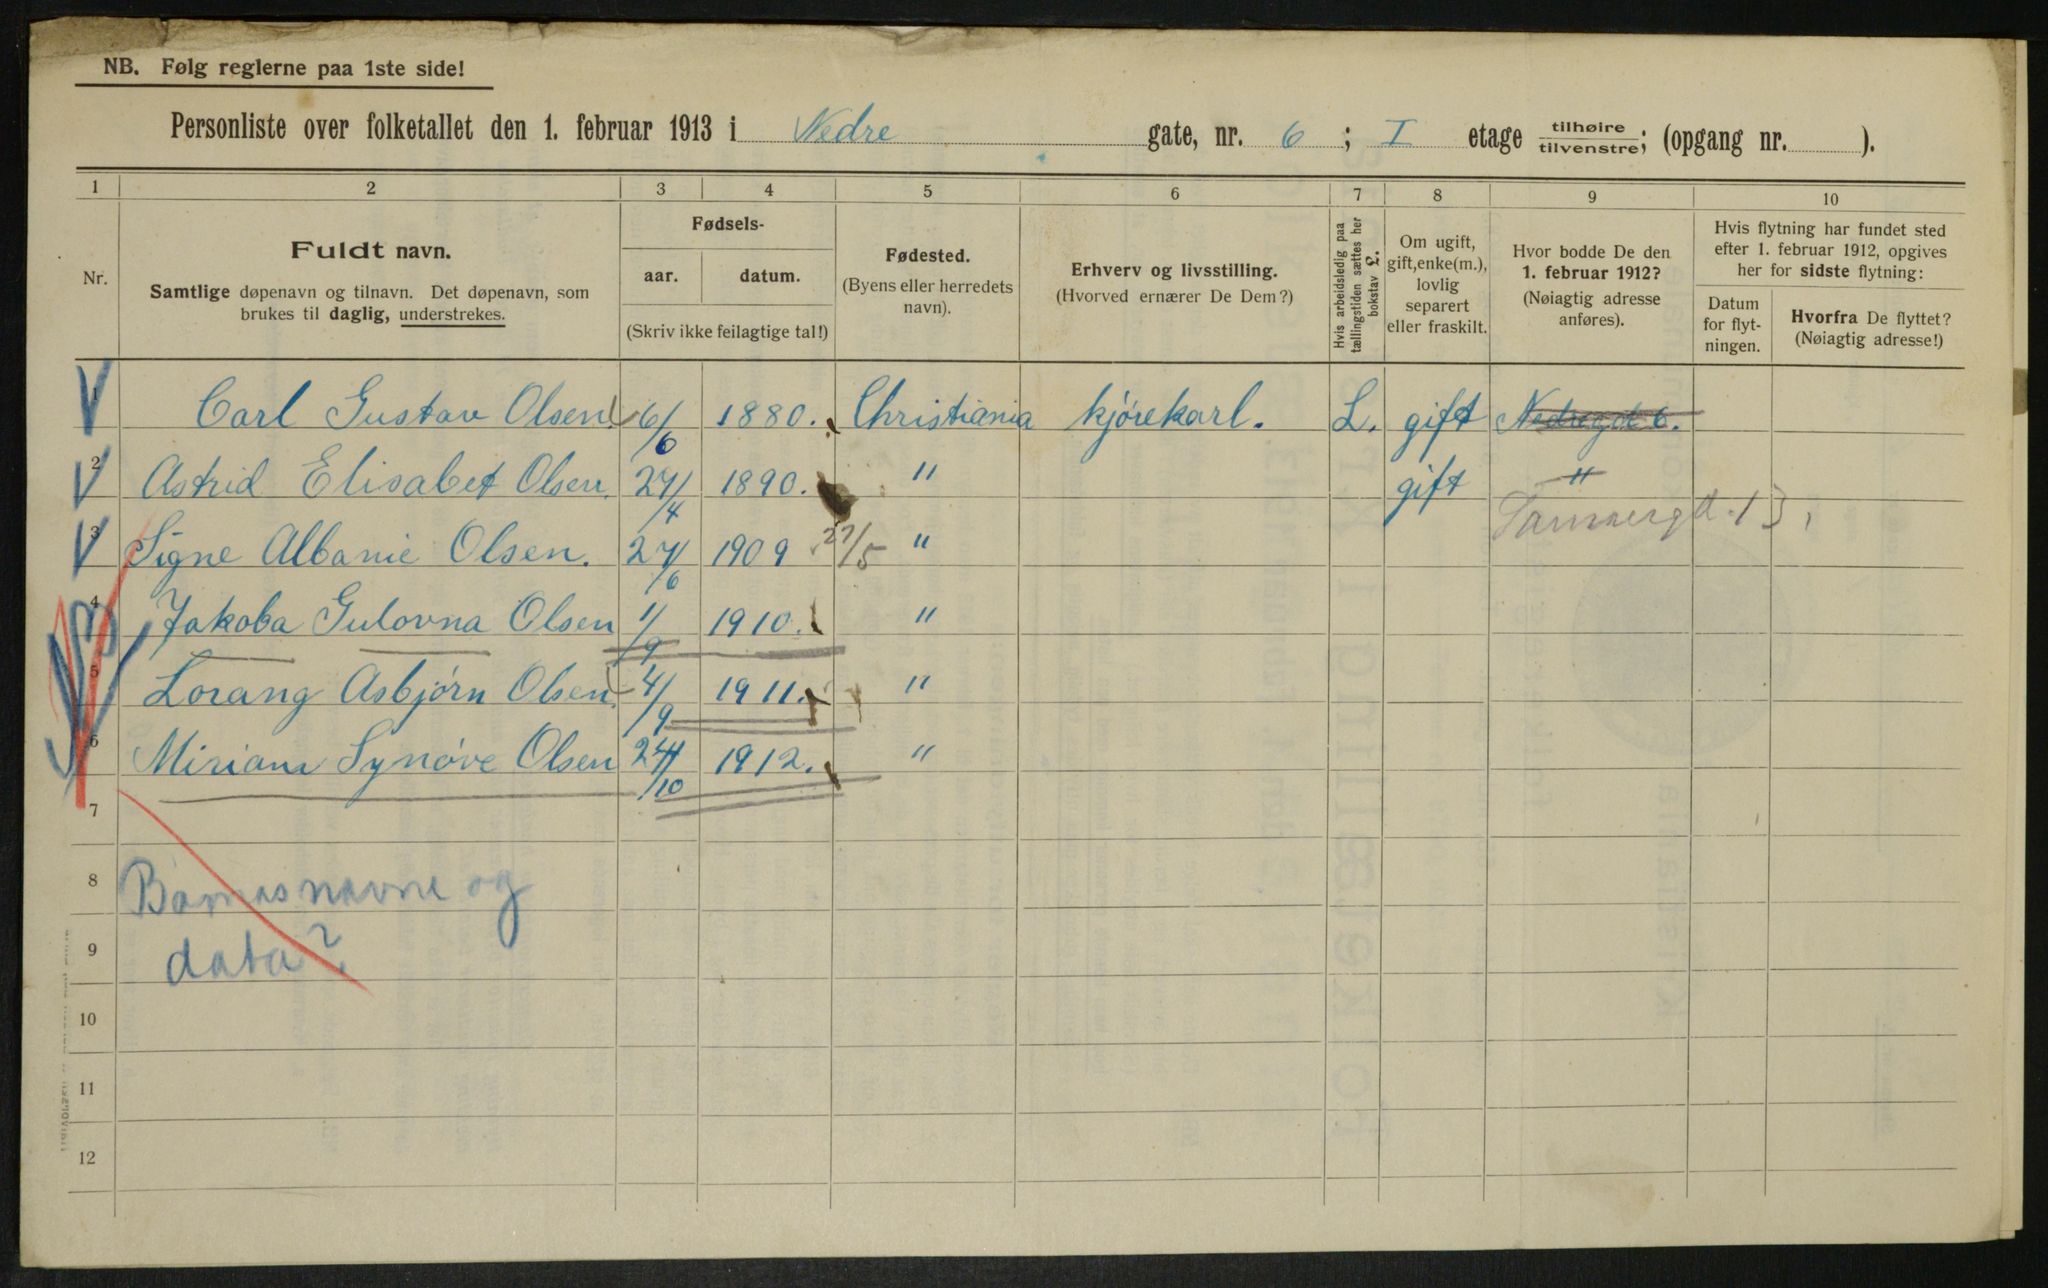 NB. Følg reglerne paa 1ste side!
Personliste over folketallet den 1. februar 1913 i Nedre gate, nr. 6 ; I etage tilhøire/tilvenstre; (opgang nr. ).
1 2 3 4 5 6 7 8 9 10
Nr.
Fuldt navn.
Samtlige døpenavn og tilnavn. Det døpenavn, som
brukes til daglig, understrekes.
Fødsels-
aar. datum.
(Skriv ikke feilagtige tal!)
Fødested.
(Byens eller herredets
navn).
Erhverv og livsstilling.
(Hvorved ernærer De Dem?)
Hvis arbeidsledig paa
tællingstiden sættes her
bokstav L.
Om ugift,
gift, enke(m.),
lovlig
separert
eller fraskilt.
Hvor bodde De den
1. februar 1912?
(Nøiagtig adresse
anføres).
Hvis flytning har fundet sted
efter 1. februar 1912, opgives
her for sidste flytning:
Datum
for flyt-
ningen.
Hvorfra De flyttet?
(Nøiagtig adresse!)
1 Carl Gustav Olsen. 6/6 1880. Christiania kjørekarl. L. gift Nedregdt 6.
2 Astrid Elisabet Olsen. 27/4 1890. " gift "
3 Signe Albanie Olsen. 27/6 1909 27/5 "
4 Jakoba Gulovna Olsen 1/9 1910. "
5 Lorang Asbjørn Olsen. 4/9 1911. "
6 Miriam Synøve Olsen 24/10 1912. "
7
8 Barnas navne og
9 data?
10
11
12